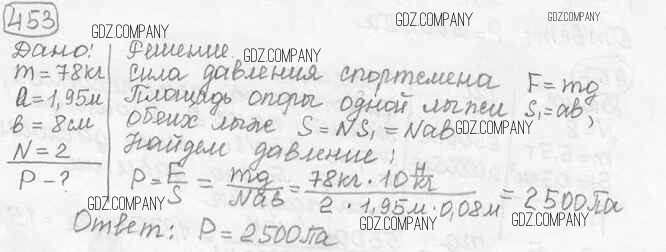 453
Дано: Решение
m = 78кг Сила давления спортсмена F = mg
a = 1,95м Площадь опоры одной лыжи S₁ = ab,
b = 8см обеих лыж S = NS₁ = Nab
N = 2 Найдем давление:
P - ? P = F/S = mg/Nab = 78кг · 10 Н/кг / 2 · 1,95м · 0,08м = 2500Па
Ответ: P = 2500Па
GDZ.COMPANY
GDZ.COMPANY
GDZ.COMPANY
GDZ.COMPANY
GDZ.COMPANY
GDZ.COMPANY
GDZ.COMPANY
GDZ.COMPANY
GDZ.COMPANY
GDZ.COMPANY
GDZ.COMPANY
GDZ.COMPANY